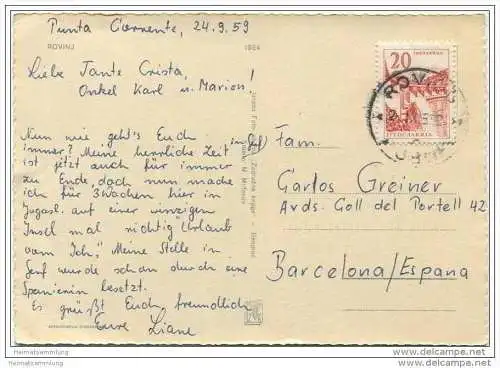 Punta Corrente, 24.9.59
ROVINJ
1984
Liebe Tante Crista,
Onkel Karl u. Marion!
Nun wie geht's Euch
immer? Meine herrliche Zeit (in Genf)
ist jetzt auch für immer
zu Ende, doch nun mache
ich für 3 Wochen hier in
Jugosl. auf einer winzigen
Insel mal richtig "Urlaub
vom Ich". Meine Stelle in
Genf wurde schon durch eine
Spanierin besetzt.
Es grüßt Euch, freundlich
Eure Liane
20
JUGOSLAVIJA
ROVINJ
Fam.
Carlos Greiner
Avds. Coll del Portell 42
Barcelona/Espana
Heimatsammlung
www.heimatsammlung.de
Heimatsammlung
www.heimatsammlung.de